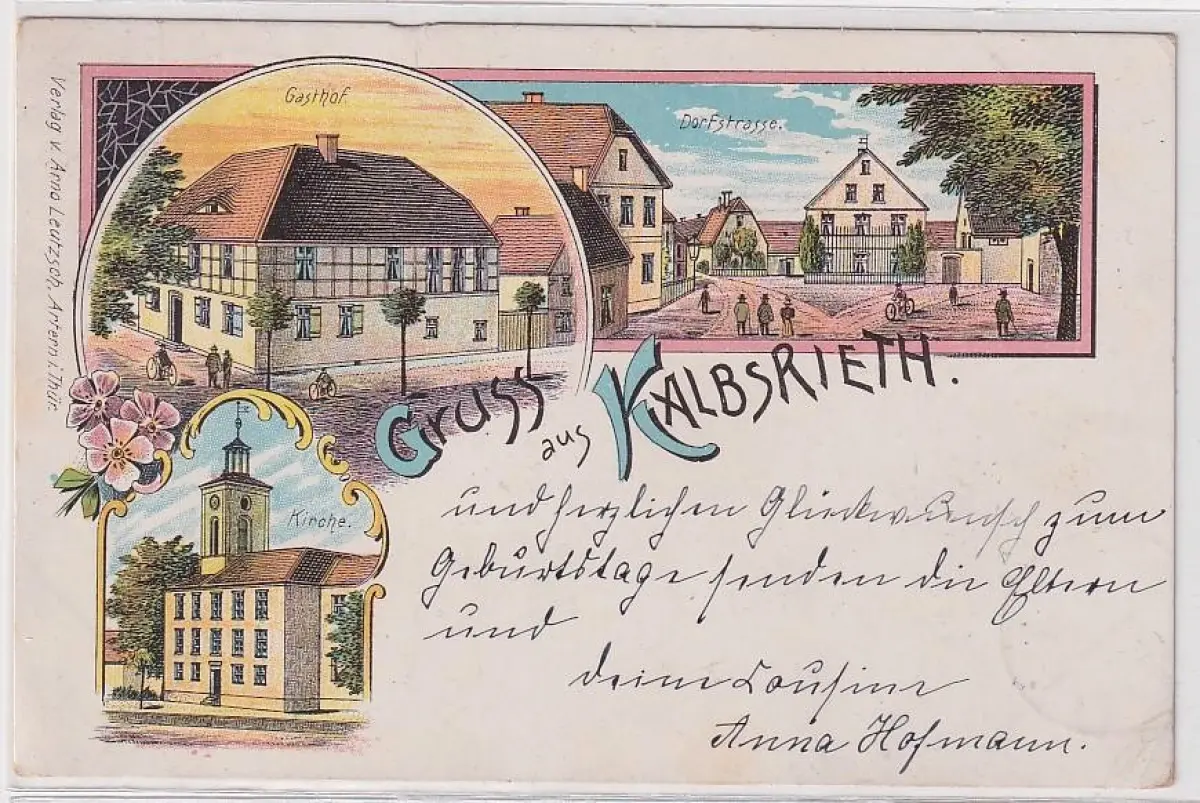 Verlag v. Arno Leutzsch, Artern i. Thür.
Gasthof.
Dorfstrasse.
Gruss aus Kalbsrieth.
Kirche.
und herzlichen Glückwunsch zum
Geburtstage senden die Eltern
und
deine Cousine
Anna Hofmann.